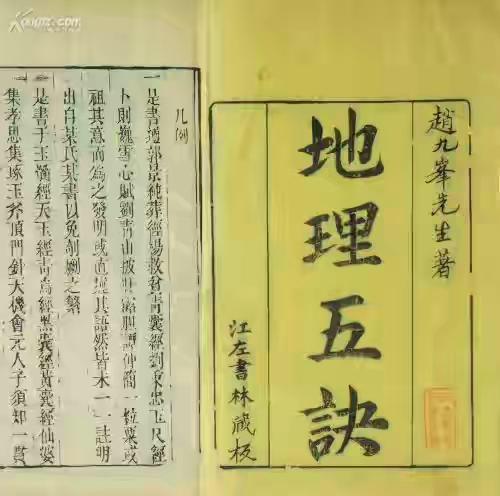 趙九峯先生著
地理五訣
江左書林藏板
凡例
一是書遵郭景純葬經楊救貧青囊經劉秉忠玉尺經
卜則巍雪心賦劉青山披肝露膽譚仲簡一粒粟或
祖其意而為之發明或直述其語然皆未一一註明
出自某氏某書以免剞劂之繁
一是書于玉髓經天玉經青烏經黑囊經黃囊經仙婆
集孝思集琢玉斧頂門針天機會元人子須知一貫